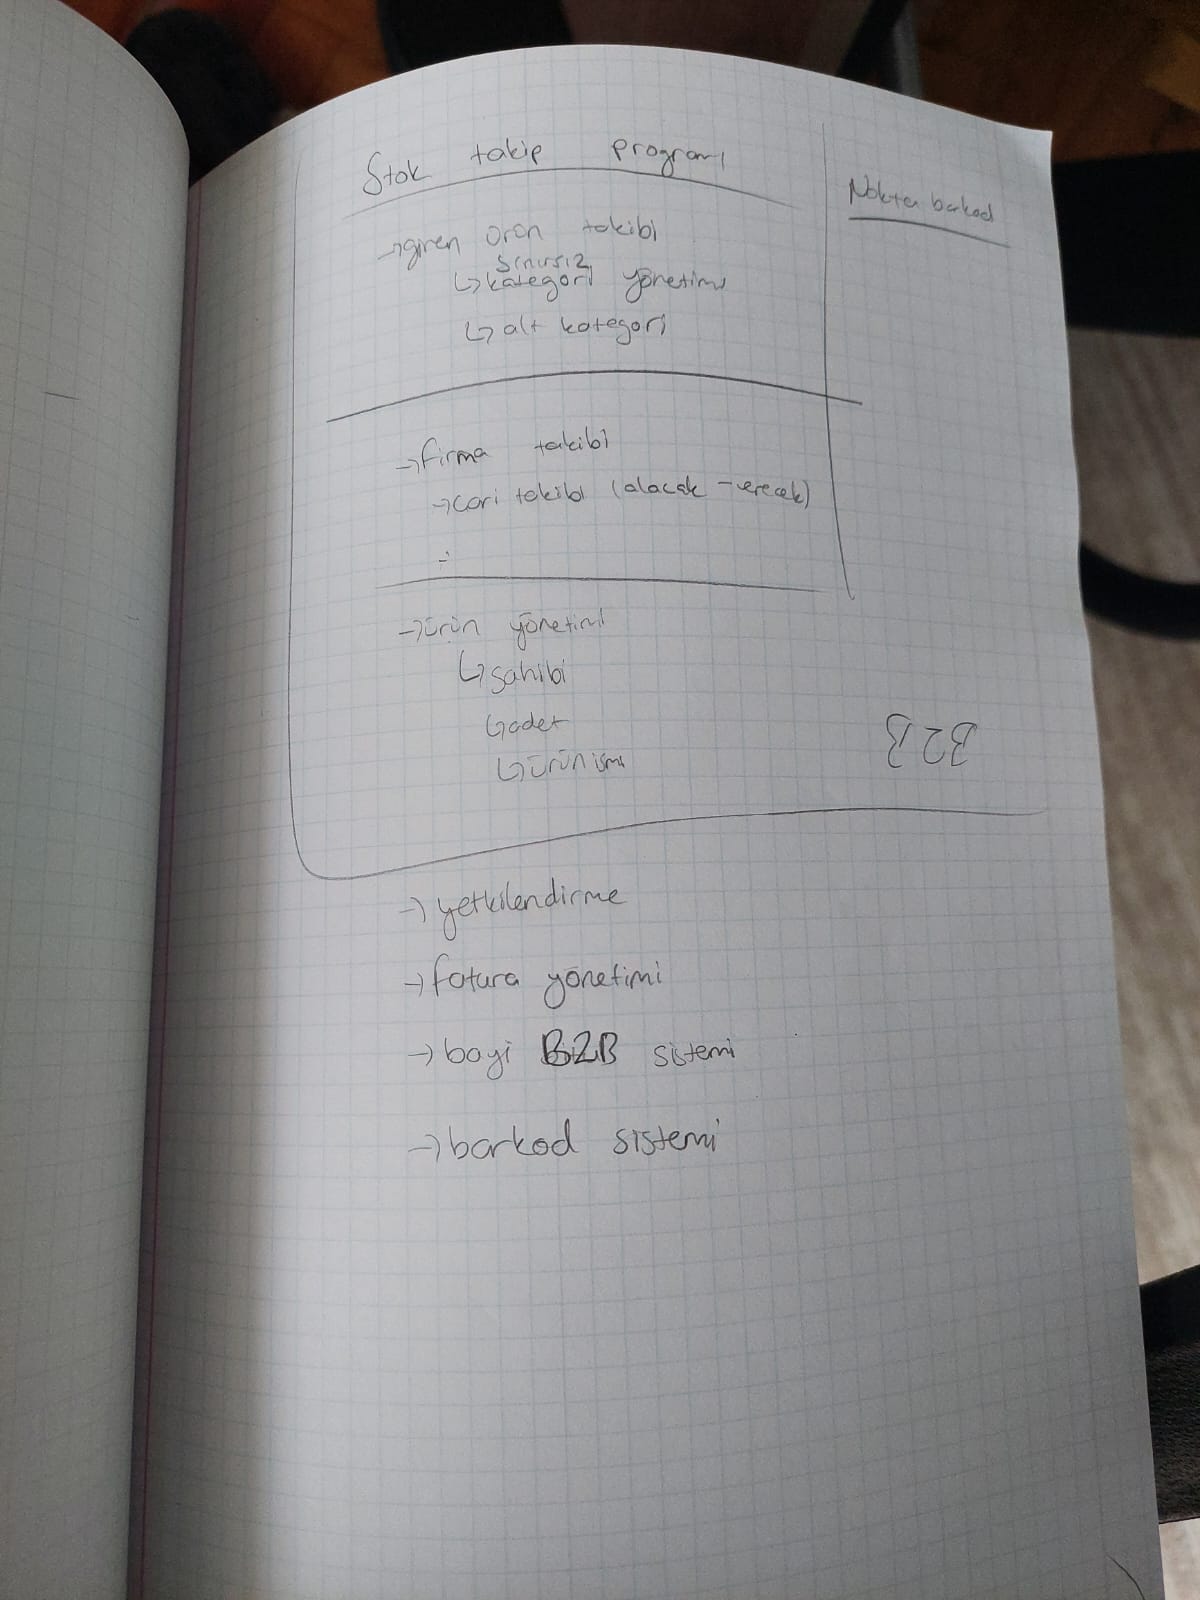 Stok takip programı
Nokta barkod
→giren ürün takibi
sınırsız
↳kategori yönetimi
↳alt kategori
→firma takibi
→cari takibi (alacak - verecek)
→ürün yönetimi
↳sahibi
↳adet
↳ürün ismi
B2B
→yetkilendirme
→fatura yönetimi
→bayi B2B sistemi
→barkod sistemi